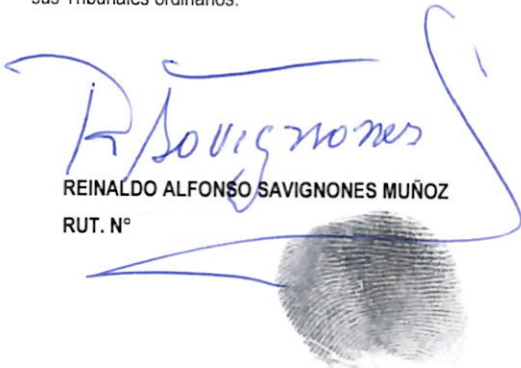 sus Tribunales ordinarios.
R Savignones
REINALDO ALFONSO SAVIGNONES MUÑOZ
RUT. N°